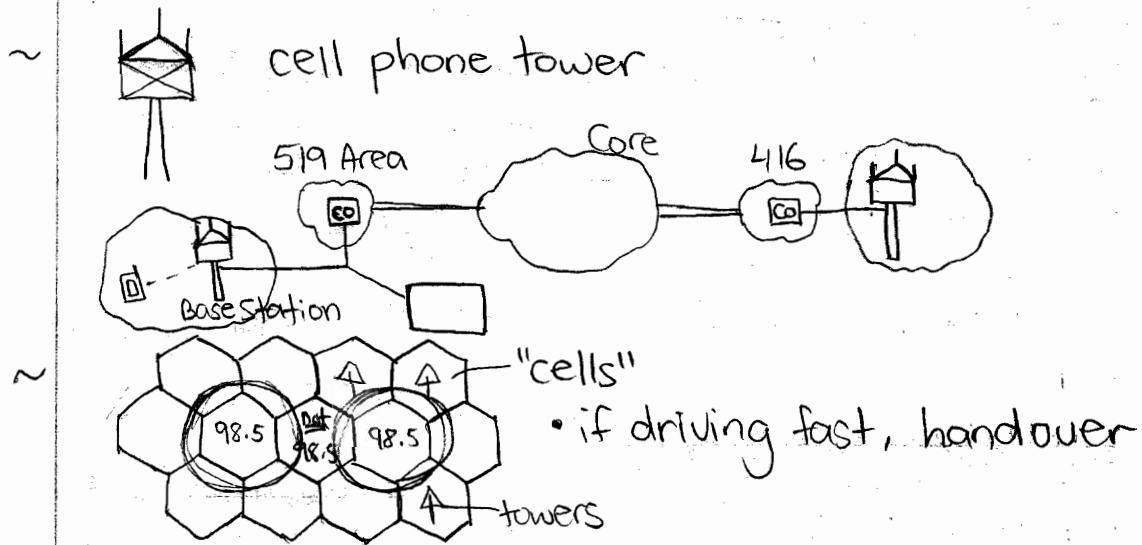 ~ cell phone tower
Core
519 Area
416
CO
CO
D
Base Station
~ "cells"
98.5
Not
98.5
98.5
• if driving fast, handover
towers